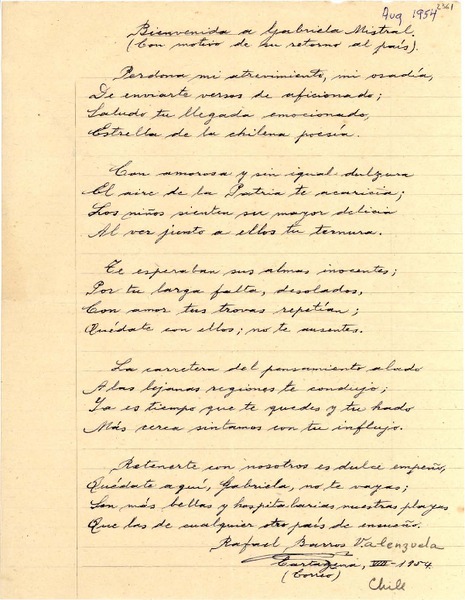 Aug 1954 2361
Bienvenida a Gabriela Mistral.
(Con motivo de su retorno al país).
Perdona mi atrevimiento, mi osadía,
De enviarte versos de aficionado;
Saludo tu llegada emocionado,
Estrella de la chilena poesía.
Con amorosa y sin igual dulzura
El aire de la Patria te acaricia;
Los niños sienten su mayor delicia
Al ver junto a ellos tu ternura.
Te esperaban sus almas inocentes;
Por tu larga falta, desolados,
Con amor tus trovas repetían;
Quédate con ellos; no te ausentes.
La carretera del pensamiento alado
A las lejanas regiones te condujo;
Ya es tiempo que te quedes y tu hado
Más cerca sintamos con tu influjo.
Retenerte con nosotros es dulce empeño,
Quédate aquí, Gabriela, no te vayas;
Son más bellas y hospitalarias nuestras playas
Que las de cualquier otro país de ensueño.
Rafael Barros Valenzuela
Cartagena, VIII-1954.
(Correo)
Chile